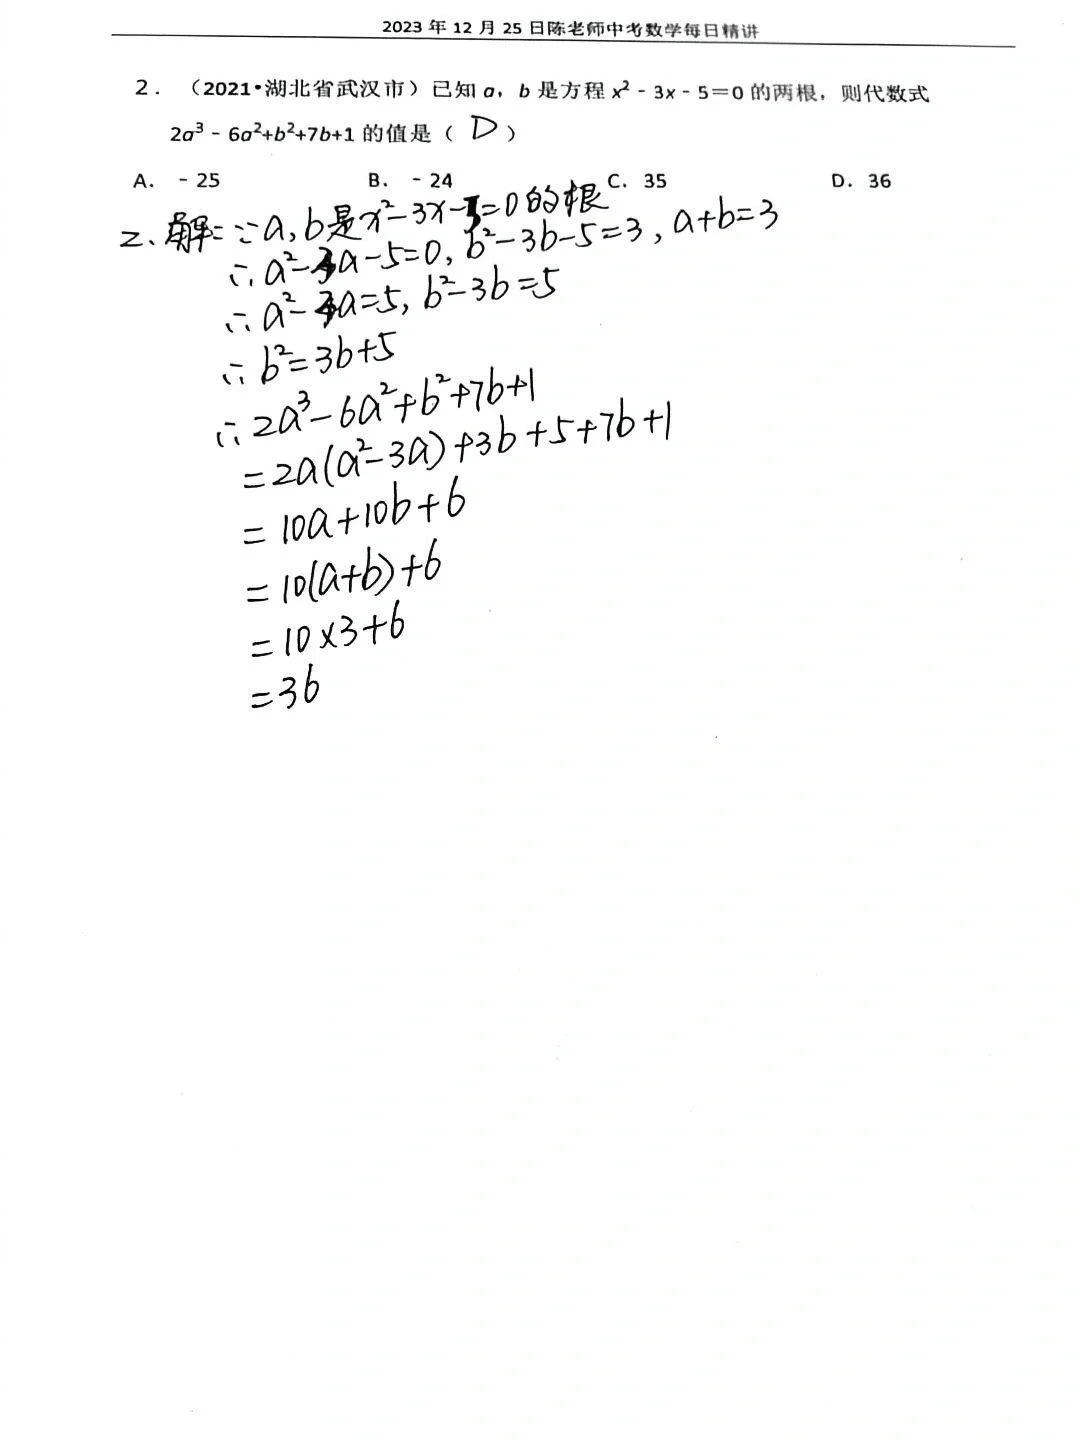 2023 年 12 月 25 日陈老师中考数学每日精讲
2. （2021•湖北省武汉市）已知 a，b 是方程 x² - 3x - 5=0 的两根，则代数式
2a³ - 6a²+b²+7b+1 的值是（ D ）
A. - 25 B. - 24 C. 35 D. 36
2、解：∵a,b是x²-3x-5=0的根
∴a²-3a-5=0, b²-3b-5=3, a+b=3
∴a²-3a=5, b²-3b=5
∴b²=3b+5
∴2a³-6a²+b²+7b+1
=2a(a²-3a)+3b+5+7b+1
=10a+10b+6
=10(a+b)+6
=10×3+6
=36